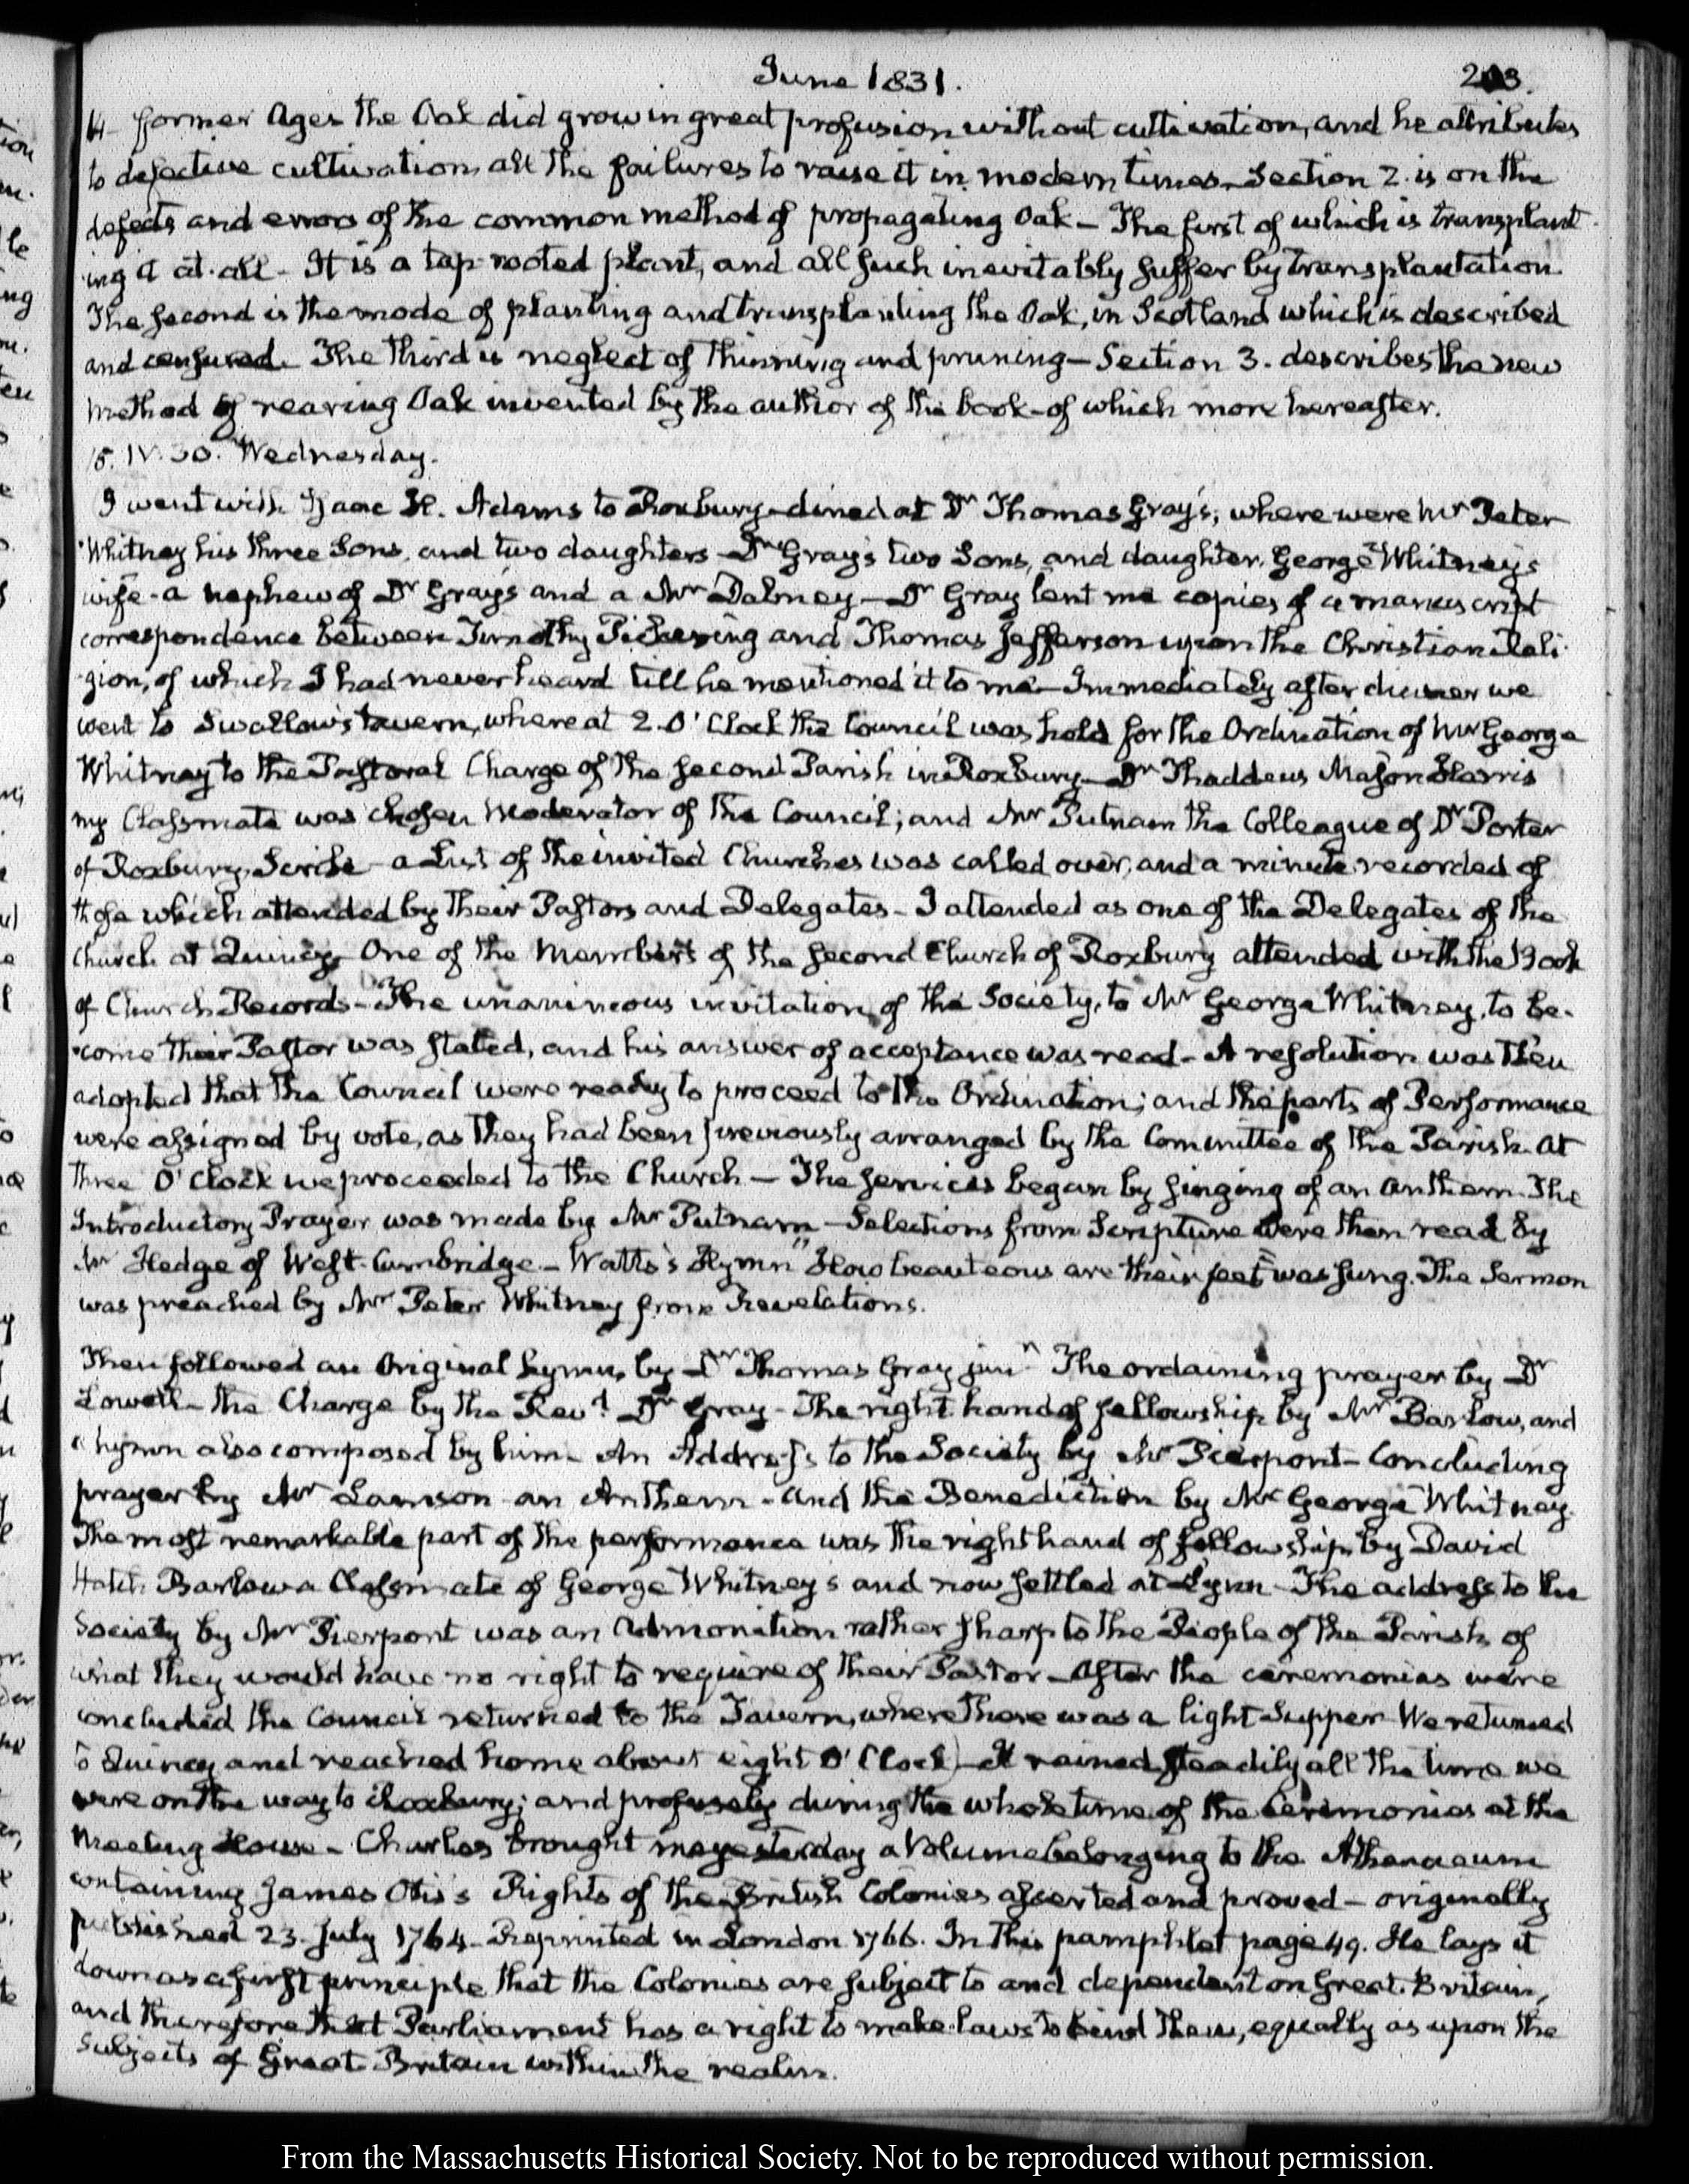 June 1831.
203.
14 former Ages the Oak did grow in great profusion without cultivation, and he attributes
to defective cultivation all the failures to raise it in modern times. Section 2. is on the
defects and errors of the common method of propagating Oak – The first of which is transplant-
ing it at all – It is a tap-rooted plant, and all such inevitably suffer by transplantation.
The second is the mode of planting and transplanting the Oak, in Scotland which is described
and censured. The third is neglect of thinning and pruning – Section 3. describes the new
method of rearing Oak invented by the author of the book – of which more hereafter.
15. IV. 30. Wednesday.
I went with Isaac H. Adams to Roxbury – dined at Dr Thomas Gray's; where were Mr Peter
Whitney his three Sons, and two daughters – Dr Gray's two Sons, and daughter. George Whitney's
wife – a nephew of Dr Gray's and a Mr Dabney – Dr Gray lent me copies of a manuscript
correspondence between Timothy Pickering and Thomas Jefferson upon the Christian Reli-
gion, of which I had never heard till he mentioned it to me – Immediately after dinner we
went to Swallow's tavern, where at 2. O'Clock the Council was held for the Ordination of Mr George
Whitney to the Pastoral Charge of the second Parish in Roxbury – Dr Thaddeus Mason Harris
my Classmate was chosen Moderator of the Council; and Mr Putnam the Colleague of Dr Porter
of Roxbury, Scribe – a List of the invited Churches was called over, and a minute recorded of
those which attended by their Pastors and Delegates – I attended as one of the Delegates of the
Church at Quincy. One of the Members of the second Church of Roxbury attended with the Book
of Church Records – The unanimous invitation of the Society, to Mr George Whitney, to be-
come their Pastor was stated, and his answer of acceptance was read – A resolution was then
adopted that the Council were ready to proceed to the Ordination; and the parts of Performance
were assigned by vote, as they had been previously arranged by the Committee of the Parish. At
three O'Clock we proceeded to the Church – The services began by singing of an Anthem. The
Introductory Prayer was made by Mr Putnam – Selections from Scripture were then read by
Mr Hedge of West-Cambridge – Watts's Hymn "How beauteous are their feet" was sung. The Sermon
was preached by Mr Peter Whitney from Revelations.
Then followed an Original hymn, by Dr Thomas Gray junr The ordaining prayer by Dr
Lowell – the Charge by the Revd Dr Gray – The right hand of fellowship by Mr Barlow, and
a hymn also composed by him – An Address to the Society by Mr Pierpont – Concluding
prayer by Mr Lamson – an Anthem – and the Benediction by Mr George Whitney.
The most remarkable part of the performance was the right hand of fellowship by David
Hatch Barlow a Classmate of George Whitney's and now settled at Lynn – The address to the
Society by Mr Pierpont was an Admonition rather sharp to the People of the Parish of
what they would have no right to require of their Pastor – After the ceremonies were
concluded the Council returned to the Tavern, where there was a light Supper. We returned
to Quincy and reached home about eight O'Clock – It rained steadily all the time we
were on the way to Roxbury; and profusely during the whole time of the Ceremonies at the
Meeting House – Charles brought me yesterday a Volume belonging to the Athenaeum
containing James Otis's Rights of the British Colonies asserted and proved – originally
published 23. July 1764 – Reprinted in London 1766. In this pamphlet page 49. He lays it
down as a first principle that the Colonies are subject to and dependent on Great-Britain,
and therefore that Parliament has a right to make laws to bind them, equally as upon the
Subjects of Great-Britain within the realm.
From the Massachusetts Historical Society. Not to be reproduced without permission.